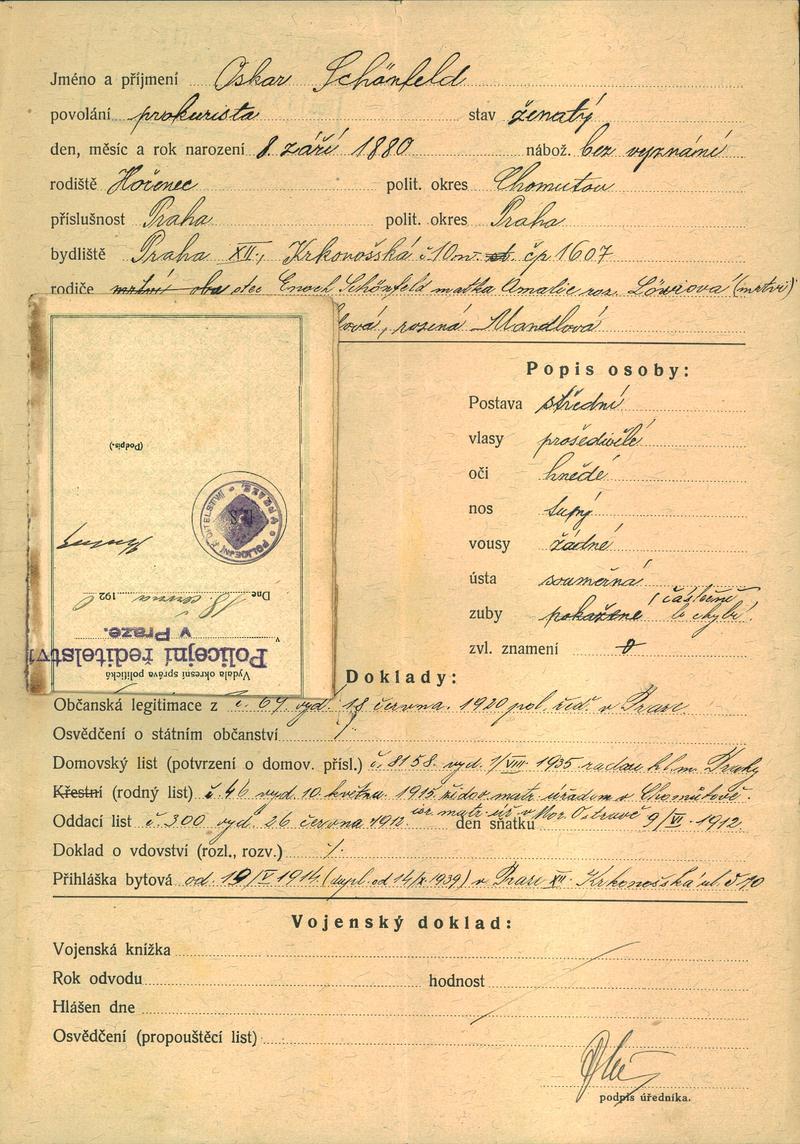 Jméno a příjmení Oskar Schönfeld
povolání prokurista stav ženatý
den, měsíc a rok narození 8. září 1880 nábož. bez vyznání
rodiště Hořenec polit. okres Chomutov
příslušnost Praha polit. okres Praha
bydliště Praha XII., Krkonošská č 10 čp 1607
rodiče mrtvi oba otec Enoch Schönfeld matka Amalie roz. Löwiová (mrtvi)
rozená Mandlová
Popis osoby:
Postava střední
vlasy prošedivělé
oči hnědé
nos tupý
vousy žádné
ústa souměrná
zuby pokažené částečně chybí
zvl. znamení 0
(Podpis.)
POLICEJNÍ ŘEDITELSTVÍ V PRAZE
Dne 18 června 1920
v
Policejní ředitelství
v Praze.
Vydala okresní správa politická
Doklady:
Občanská legitimace z č. 67 vyd. 18 června 1920 pol. řed. v Praze
Osvědčení o státním občanství
Domovský list (potvrzení o domov. přísl.) č. 8158 vyd. 1/VIII 1935 radou hl. m. Prahy
Křestní (rodný list) č. 46 vyd. 10. května 1915 židov. matr. úřadem v Chomutově.
Oddací list č 300 vyd. 26 června 1912 isr. matr. úř. v Mor. Ostravě den sňatku 9/VI. 1912
Doklad o vdovství (rozl., rozv.)
Přihláška bytová od 19/V 1914 (dupl. od 14/X 1939) v Praze XII. Krkonošská ul. č 10
Vojenský doklad:
Vojenská knížka
Rok odvodu hodnost
Hlášen dne
Osvědčení (propouštěcí list)
podpis úředníka.